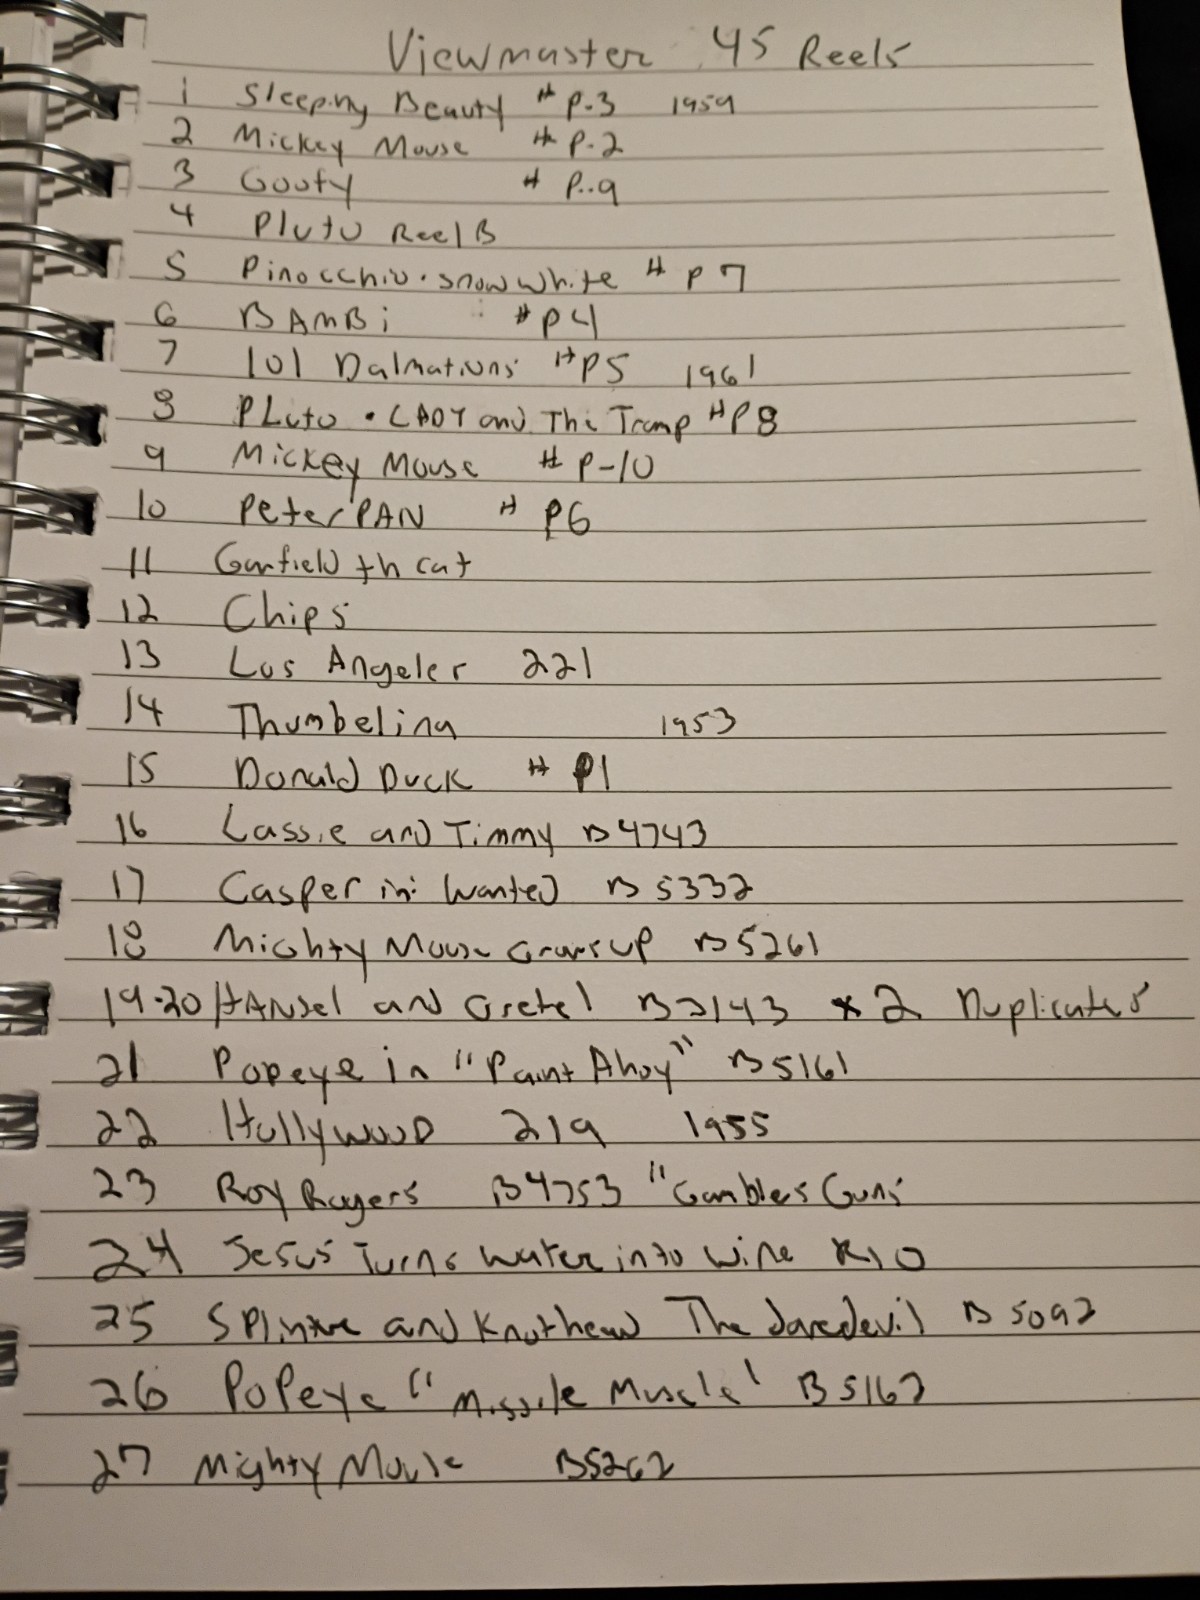 Viewmaster 45 Reels
1 Sleeping Beauty # P-3 1959
2 Mickey Mouse # P-2
3 Goofy # P-9
4 Pluto Reel B
5 Pinocchio · Snow White # P 7
6 BAMBi #P4
7 101 Dalmations #P5 1961
8 PLuto · LADY and The Tramp #P8
9 Mickey Mouse # P-10
10 Peter PAN # P6
11 Garfield th cat
12 Chips
13 Los Angeles 221
14 Thumbelina 1953
15 Donald Duck # P1
16 Lassie and Timmy B4743
17 Casper in: Wanted B 5332
18 Mighty Mouse Grows up B5261
19-20 HANsel and Gretel B2143 x 2 Duplicates
21 Popeye in "Paint Ahoy" B5161
22 Hollywood 219 1955
23 Roy Rogers B4753 "Gambles Guns
24 Jesus Turns Water into Wine
25 and Knothead The daredevil B 5092
26 PoPeye "Missile Muscle' B 5162
27 Mighty Mouse B5262